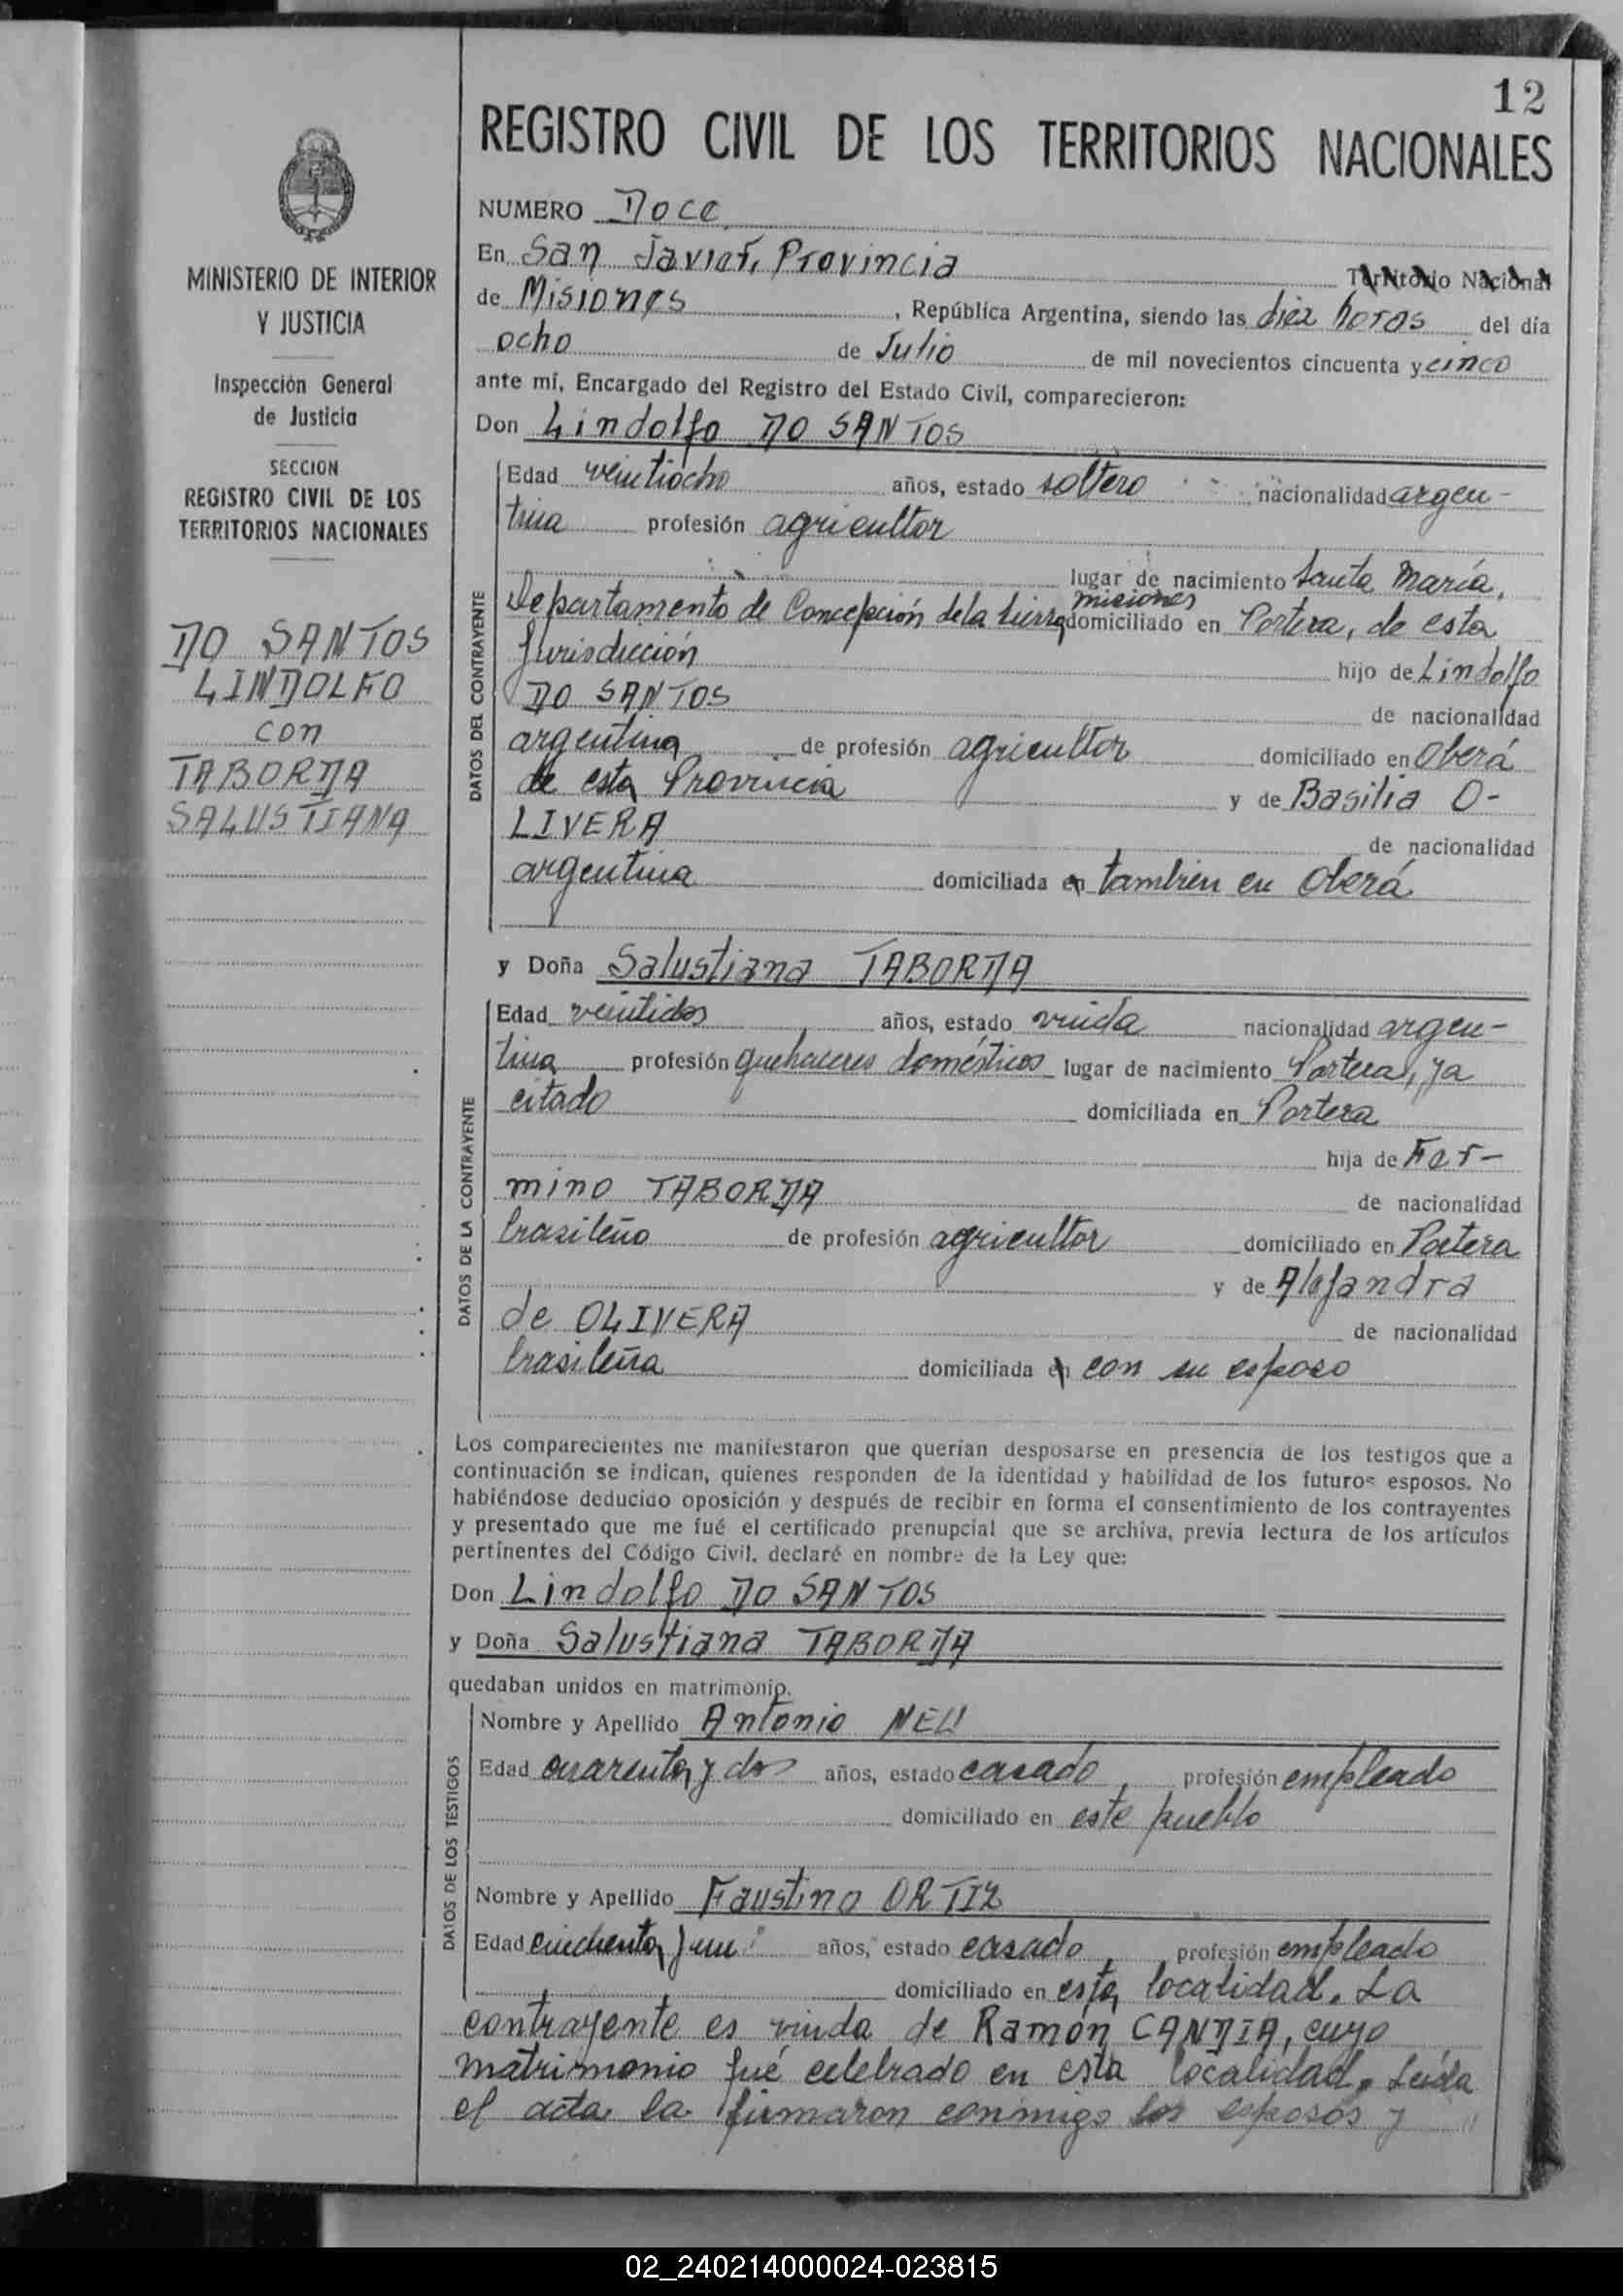 12
REGISTRO CIVIL DE LOS TERRITORIOS NACIONALES
MINISTERIO DE INTERIOR
Y JUSTICIA
Inspección General
de Justicia
SECCION
REGISTRO CIVIL DE LOS
TERRITORIOS NACIONALES
DO SANTOS
LINDOLFO
con
TABORDA
SALUSTIANA
NUMERO Doce
En San Javier, Provincia Territorio Nacional
de Misiones, República Argentina, siendo las diez horas del día
ocho de Julio de mil novecientos cincuenta y cinco
ante mí, Encargado del Registro del Estado Civil, comparecieron:
Don Lindolfo DO SANTOS
DATOS DEL CONTRAYENTE
Edad veintiocho años, estado soltero nacionalidad argen-
tina profesión agricultor
lugar de nacimiento Santa María,
Misiones
Departamento de Concepción de la Sierra domiciliado en Portera, de esta
Jurisdicción hijo de Lindolfo
DO SANTOS de nacionalidad
argentina de profesión agricultor domiciliado en Oberá
de esta Provincia y de Basilia O-
LIVERA de nacionalidad
argentina domiciliada en tambien en Oberá
y Doña Salustiana TABORDA
DATOS DE LA CONTRAYENTE
Edad veintidos años, estado viuda nacionalidad argen-
tina profesión quehaceres domésticos lugar de nacimiento Portera, ya
citado domiciliada en Portera
hija de Fer-
mino TABORDA de nacionalidad
brasileño de profesión agricultor domiciliado en Portera
y de Alejandra
de OLIVERA de nacionalidad
brasileña domiciliada en con su esposo
Los comparecientes me manifestaron que querían desposarse en presencia de los testigos que a
continuación se indican, quienes responden de la identidad y habilidad de los futuros esposos. No
habiéndose deducido oposición y después de recibir en forma el consentimiento de los contrayentes
y presentado que me fué el certificado prenupcial que se archiva, previa lectura de los artículos
pertinentes del Código Civil, declaré en nombre de la Ley que:
Don Lindolfo DO SANTOS
y Doña Salustiana TABORDA
quedaban unidos en matrimonio.
DATOS DE LOS TESTIGOS
Nombre y Apellido Antonio
Edad cuarenta y dos años, estado casado, profesión empleado
domiciliado en este pueblo
Nombre y Apellido Faustino ORTIZ
Edad cincuenta y un años, estado casado, profesión empleado
domiciliado en esta localidad. La
contrayente es viuda de Ramón CANDIA, cuyo
matrimonio fué celebrado en esta localidad. Leída
el acta la firmaron conmigo los esposos y
02_240214000024-023815